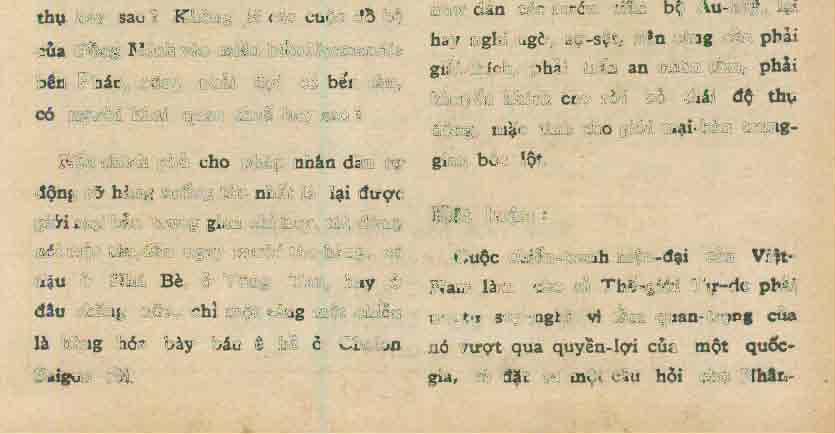 thụ hay sao ? Không lẽ các cuộc đổ bộ
của Đồng Minh vào miền
bến phải đợi có bến tàu,
có người khai quan thuế hay sao ?
chánh phủ cho phép nhân dân tự
động dỡ hàng xuống nhất là lại được
giới mại bản trung gian chỉ huy, thì đừng
nói một tàu dầu ngay người
đậu ở Nhà Bè, ở Vũng Tàu, hay ở
đâu chăng nữa, chỉ một sáng một chiều
là hàng hóa bày bán ê hề ở Cholon
Saigon rồi.
dân các nước tiến bộ Âu-mỹ, lại
hay nghi ngờ, sợ-sệt, nên càng cần phải
giải-thích, phải trấn an nhân tâm, phải
khuyến khích cho rời bỏ thái độ thụ
động, mặc tình cho giới mại-bản trung-
gian bóc lột.
Kết luận :
Cuộc chiến-tranh hiện-đại của Việt-
Nam làm cho cả Thế-giới Tự-do phải
suy nghĩ vì tầm quan-trọng của
nó vượt qua quyền-lợi của một quốc-
gia, nó đặt ra một câu hỏi cho Nhân-